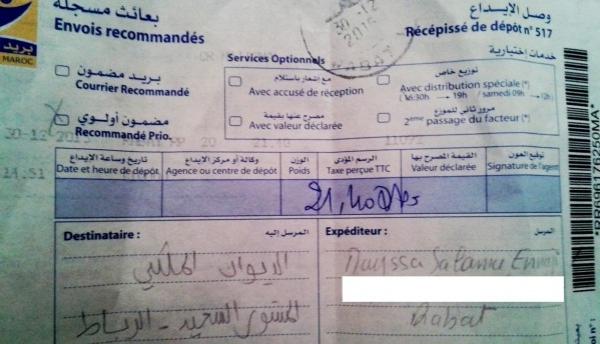 بعائث مسجلة
Envois recommandés
وصل الإيداع
Récépissé de dépôt n° 517
بريد
MAROC
30-12
2015
Services Optionnels
خدمات اختيارية
بريد مضمون
Courrier Recommandé
مع إشعار باستلام
Avec accusé de réception
توزيع خاص
Avec distribution spéciale (*)
(16h30 → 19h / samedi 09h → 12h)
مضمون أولوي
Recommandé Prio.
مصرح عنها بقيمة
Avec valeur déclarée
مرور ثاني للموزع
2ème passage du facteur (*)
30-12-2015
20
21.40
14.51
تاريخ وساعة الإيداع
Date et heure de dépôt
وكالة أو مركز الإيداع
Agence ou centre de dépôt
الوزن
Poids
الرسم المؤدى
Taxe perçue TTC
القيمة المصرح بها
Valeur déclarée
توقيع العون
Signature de l'agent
21,40 Dhs
Destinataire :
المرسل إليه :
الديوان الملكي
المشور السعيد - الرباط
Expéditeur :
المرسل
Salama
Rabat
*RR696176250MA*